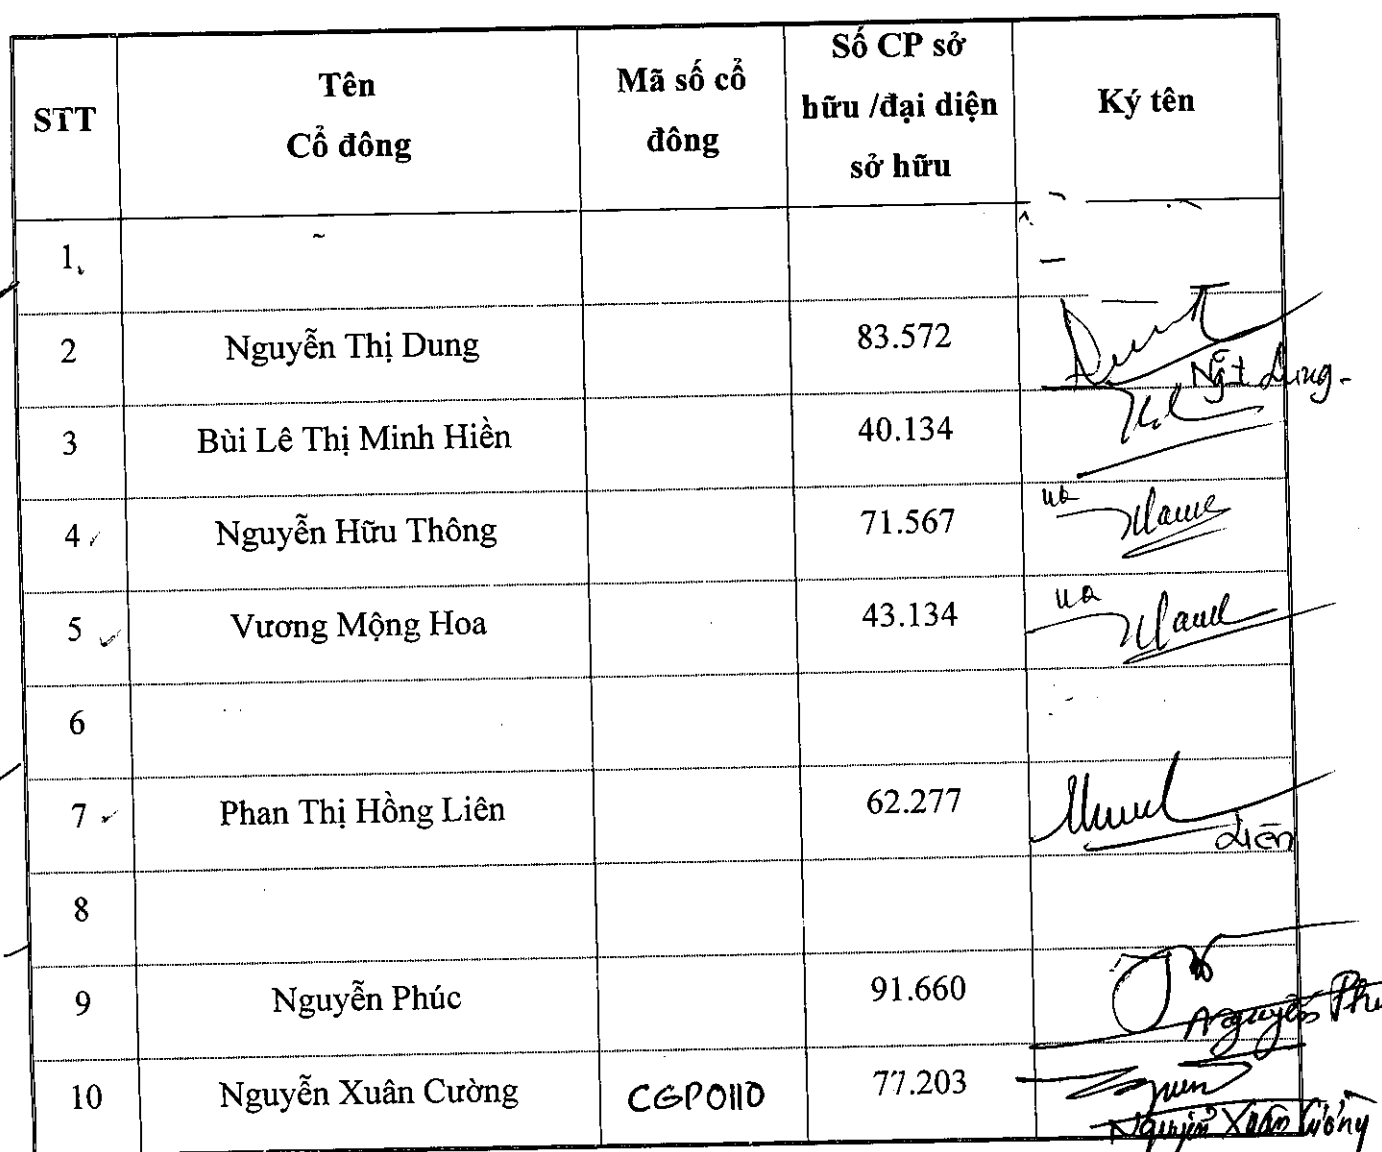 STT
Tên
Cổ đông
Mã số cổ
đông
Số CP sở
hữu /đại diện
sở hữu
Ký tên
1
2 Nguyễn Thị Dung 83.572
Ngt Dung
3 Bùi Lê Thị Minh Hiền 40.134
4 Nguyễn Hữu Thông 71.567 UQ
5 Vương Mộng Hoa 43.134 UQ
6
7 Phan Thị Hồng Liên 62.277
Liên
8
9 Nguyễn Phúc 91.660
Nguyễn Phú
10 Nguyễn Xuân Cường CGP0110 77.203
Nguyễn Xuân Cường